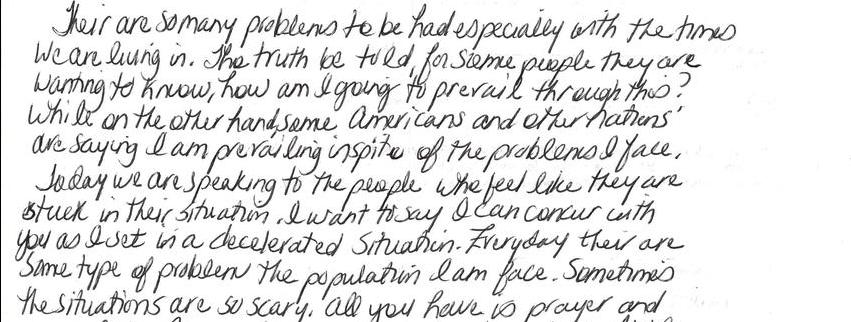 Their are so many problems to be had especially with the times
We are living in. The truth be told, for some people they are
Wanting to know, how am I going to prevail through this?
While on the other hand, some Americans and other nations'
are saying I am prevailing inspite of the problems I face.
Today we are speaking to the people who feel like they are
stuck in their situation. I want to say I can concur with
you as I set in a decelerated Situation. Everyday their are
Some type of problem the population I am face. Sometimes
the situations are so scary. All you have is prayer and